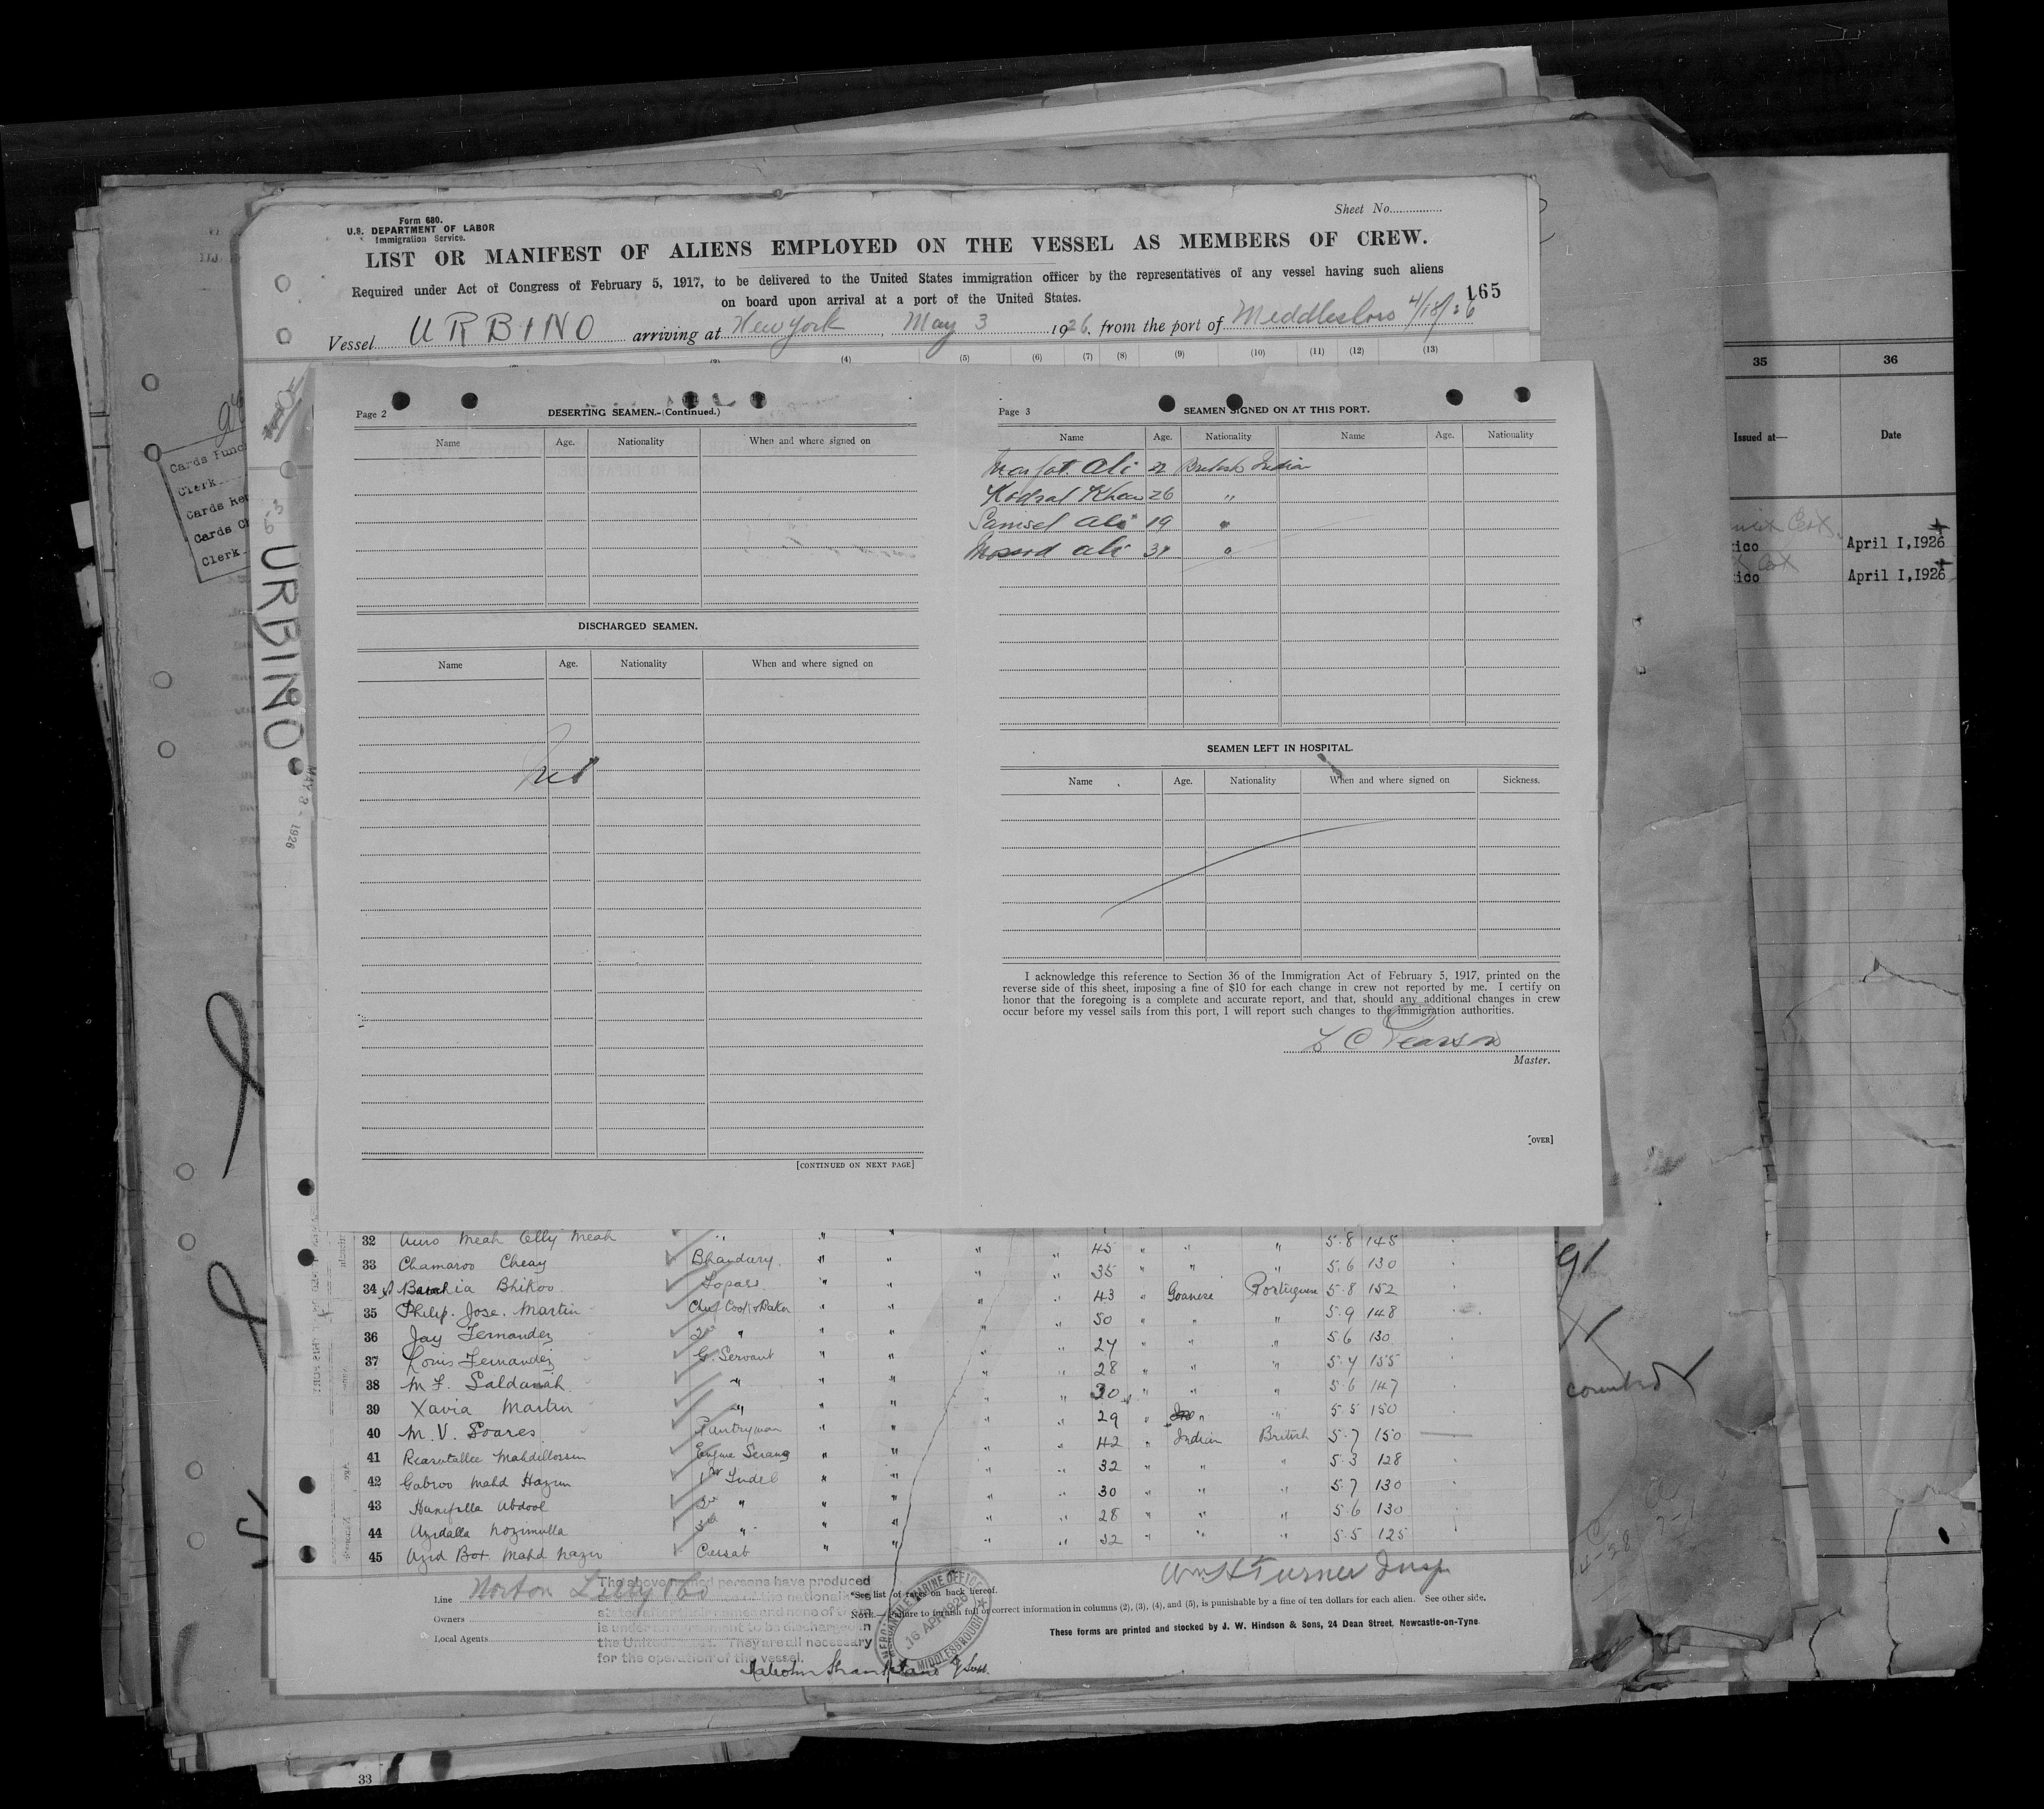 Form 680.
U.S. DEPARTMENT OF LABOR
Immigration Service.
Sheet No.
LIST OR MANIFEST OF ALIENS EMPLOYED ON THE VESSEL AS MEMBERS OF CREW.
Required under Act of Congress of February 5, 1917, to be delivered to the United States immigration officer by the representatives of any vessel having such aliens
on board upon arrival at a port of the United States.
165
Vessel URBINO arriving at New York, May 3 1926, from the port of Middlesboro 4/18/26
(4) (5) (6) (7) (8) (9) (10) (11) (12) (13)
Cards
Clerk
Cards
Cards
Clerk
5-3
URBINO
MAY 3 - 1926
Page 2
DESERTING SEAMEN.-(Continued.)
Name Age. Nationality When and where signed on
DISCHARGED SEAMEN.
Name Age. Nationality When and where signed on
[CONTINUED ON NEXT PAGE]
Page 3
SEAMEN SIGNED ON AT THIS PORT.
Name Age. Nationality Name Age. Nationality
Ali 22 British Indian
Khan 26 "
Samsel Ali 19 "
Ali "
SEAMEN LEFT IN HOSPITAL.
Name Age. Nationality When and where signed on Sickness.
I acknowledge this reference to Section 36 of the Immigration Act of February 5, 1917, printed on the
reverse side of this sheet, imposing a fine of $10 for each change in crew not reported by me. I certify on
honor that the foregoing is a complete and accurate report, and that, should any additional changes in crew
occur before my vessel sails from this port, I will report such changes to the immigration authorities.
C Pearson
Master.
[OVER]
35 36
Issued at— Date
April 1, 1926
April 1, 1926
32 Meah Meah " " 5.8 145
33 Chamaroo Cheay Bhandary " " " " 45 " " " 5.6 130
34 Bhikoo Topass " " " " 35 " " " 5.8 152
35 Philip. Jose. Martin Chef Cook & Baker " " " " 43 " Goanese Portuguese 5.9 148
36 Jay Fernandez 2nd " " " " " 50 " " " 5.6 130
37 Louis Fernandez G. Servant " " " " 24 " " " 5.4 155
38 M F. Saldanah " " " " " 28 " " " 5.6 147
39 Xavia Martin " " " " " 30 " " " 5.5 150
40 M. V. Soares Pantryman " " " " 29 " " " 5.7 150
41 Engine Serang " " " " 42 " Indian British 5.3 128
42 Gabroo Mahd 1st Tindel " " " " 32 " " " 5.7 130
43 Abdool 2nd " " " " " 30 " " " 5.6 130
44 Azidalla Nozimulla 3rd " " " " " 28 " " " 5.5 125
45 Azid Box Mahd Nazir Cassab " " " " 32 " " "
Line Norton Lilly & Co
Owners
Local Agents
The above named persons have produced
of the nationality
stated after their names and none of them
is under agreement to be discharged in
the United States. They are all necessary
for the operation of the vessel.
MERCANTILE MARINE OFFICE
16 APR 1926
MIDDLESBROUGH
Wm H Turner Insp
*See list of rates on back hereof.
NOTE.—Failure to furnish full or correct information in columns (2), (3), (4), and (5), is punishable by a fine of ten dollars for each alien. See other side.
These forms are printed and stocked by J. W. Hindson & Sons, 24 Dean Street, Newcastle-on-Tyne.
Malcolm
33